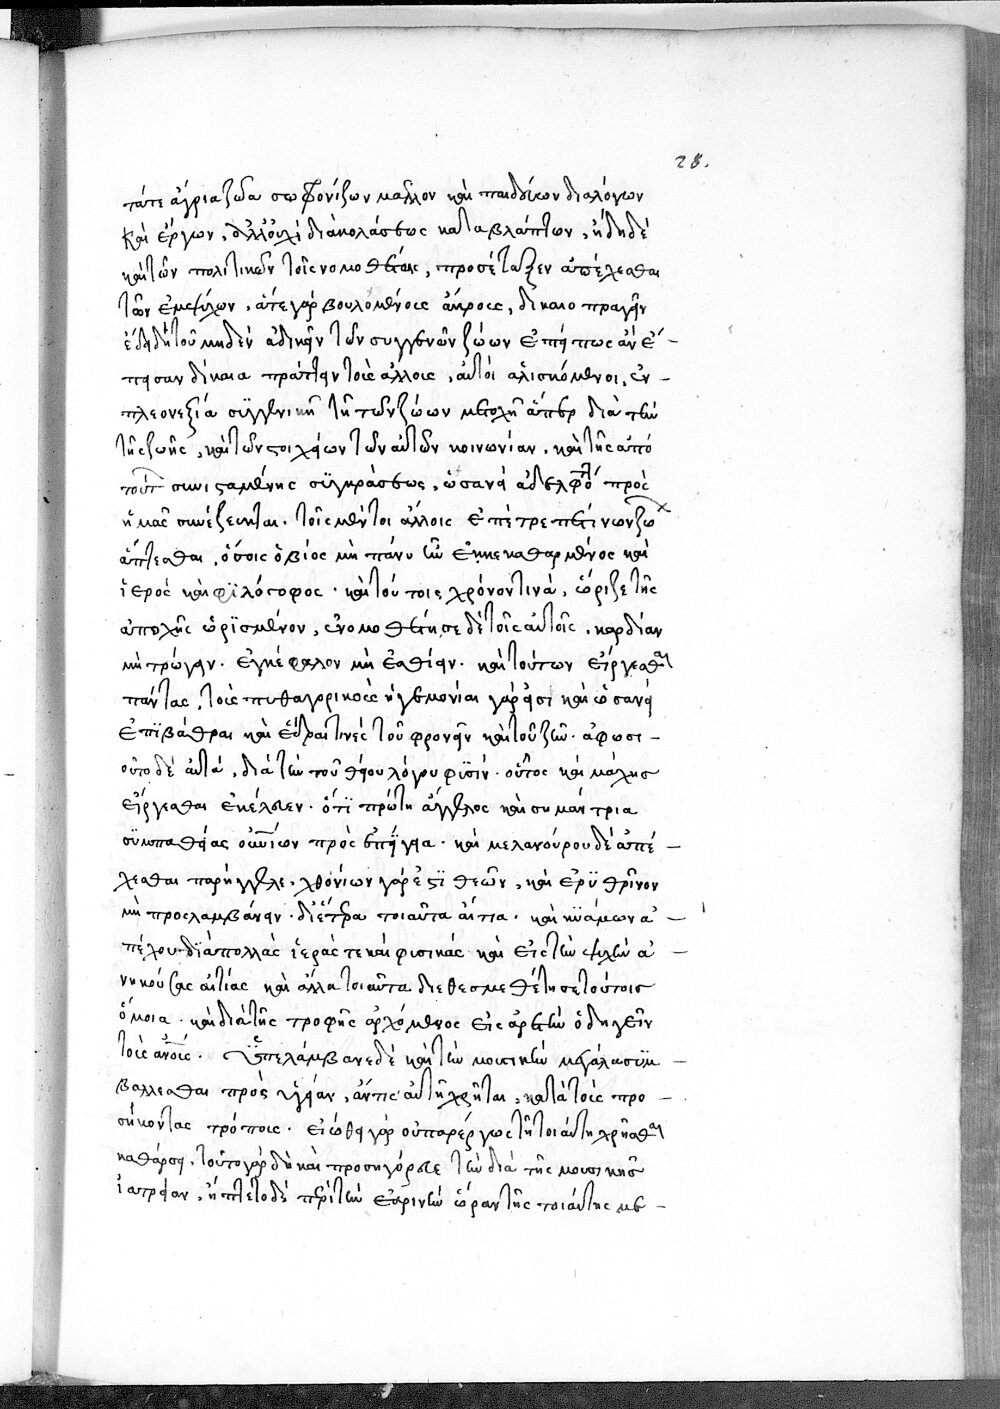 28.
τά τε ἄγρια ζῶα σωφρονίζων μᾶλλον καὶ παιδεύων διαλόγων
καὶ ἔργων, ἀλλ' οὐχὶ διὰ κολάσεως καταβλάπτων, ἤδη δὲ
καὶ τῶν πολιτικῶν τοῖς νομοθέταις, προσέταξεν ἀπέχεσθαι
τῶν ἐμψύχων, ἅτε γὰρ βουλομένοις ἄκρως, δικαιοπραγεῖν
ἔδει δήπου μηδὲν ἀδικεῖν τῶν συγγενῶν ζώων ἐπεὶ πῶς ἂν ἔ-
πεισαν δίκαια πράττειν τοῖς ἄλλοις, αὐτοὶ ἁλισκόμενοι, ἐν-
πλεονεξία συγγενικὴ τῆ τῶν ζώων μετοχὴ ἅπερ διὰ τὴν
τῆς ζωῆς, καὶ τῶν στοιχείων τῶν αὐτῶν κοινωνίαν, καὶ τῆς ἀπὸ
τούτ συνισταμένης συγκράσεως, ὡσανεὶ ἀδελφό πρὸς
ἡμᾶς συνέζευκται. τοῖς μέντοι ἄλλοις ἐπέτρεπέ τινων ζώ
ἅπτεσθαι, ὅσοις ὁ βίος μὴ πάνυ ἦν ἐκκεκαθαρμένος καὶ
ἱερὸς καὶ φιλόσοφος. καὶ τούτοις χρόνον τινὰ, ὥριζε τῆς
ἀποχῆς ὡρισμένον, ἐνομοθέτησε δὲ τοῖς αὐτοῖς, καρδίαν
μὴ τρώγειν. ἐγκέφαλον μὴ ἐσθίειν. καὶ τούτων εἴργεσθαι
πάντας, τοὺς πυθαγορικοὺς ἡγεμονίαι γάρ εἰσι καὶ ὡσανεὶ
ἐπιβάθραι καὶ ἕδραι τινὲς τοῦ φρονεῖν καὶ τοῦ ζῆν. ἀφωσι-
οῦτο δὲ αὐτὰ, διὰ τὴν τοῦ θείου λόγου φύσιν. οὕτως καὶ μαλάχης
εἴργεσθαι ἐκέλευεν. ὅτι πρώτη ἄγγελος καὶ σημάντρια
συμπαθείας οὐνίων πρὸς ἐπίγεια. καὶ μελανούρου δὲ ἀπέ-
χεσθαι παρήγγελε, χθονίων γάρ ἐστι θεῶν, καὶ ἐρυθρῖνον
μὴ προσλαμβάνειν. δι' ἕτερα τοιαῦτα αἴτια. καὶ κυάμων ἀ-
πέχου διὰ πολλὰς ἱεράς τε καὶ φυσικὰς καὶ εἰς τὴν ψυχὴν ἀ-
νηκούσας αἰτίας καὶ ἄλλα τοιαῦτα διεθεσμοθέτησε τούτοις
ὅμοια. καὶ διὰ τῆς τροφῆς ἀρχόμενος εἰς ἀρετὴν ὁδηγεῖν
τοὺς ἀνους. ὑπελάμβανε δὲ καὶ τὴν μουσικὴν μεγάλα συμ-
βάλλεσθαι πρὸς ὑγείαν, ἄν τις αὐτῆ χρῆται, κατὰ τοὺς προ-
σήκοντας τρόπους. εἰώθει γὰρ οὐ παρέργως τῆ τοιαύτη χρῆσθαι
καθάρσει, τοῦτο γὰρ δὴ καὶ προσηγόρευε τὴν διὰ τῆς μουσικῆς
ἰατρείαν, ἥπτετο δὲ περὶ τὴν ἐαρινὴν ὥραν τῆς τοιαύτης με-